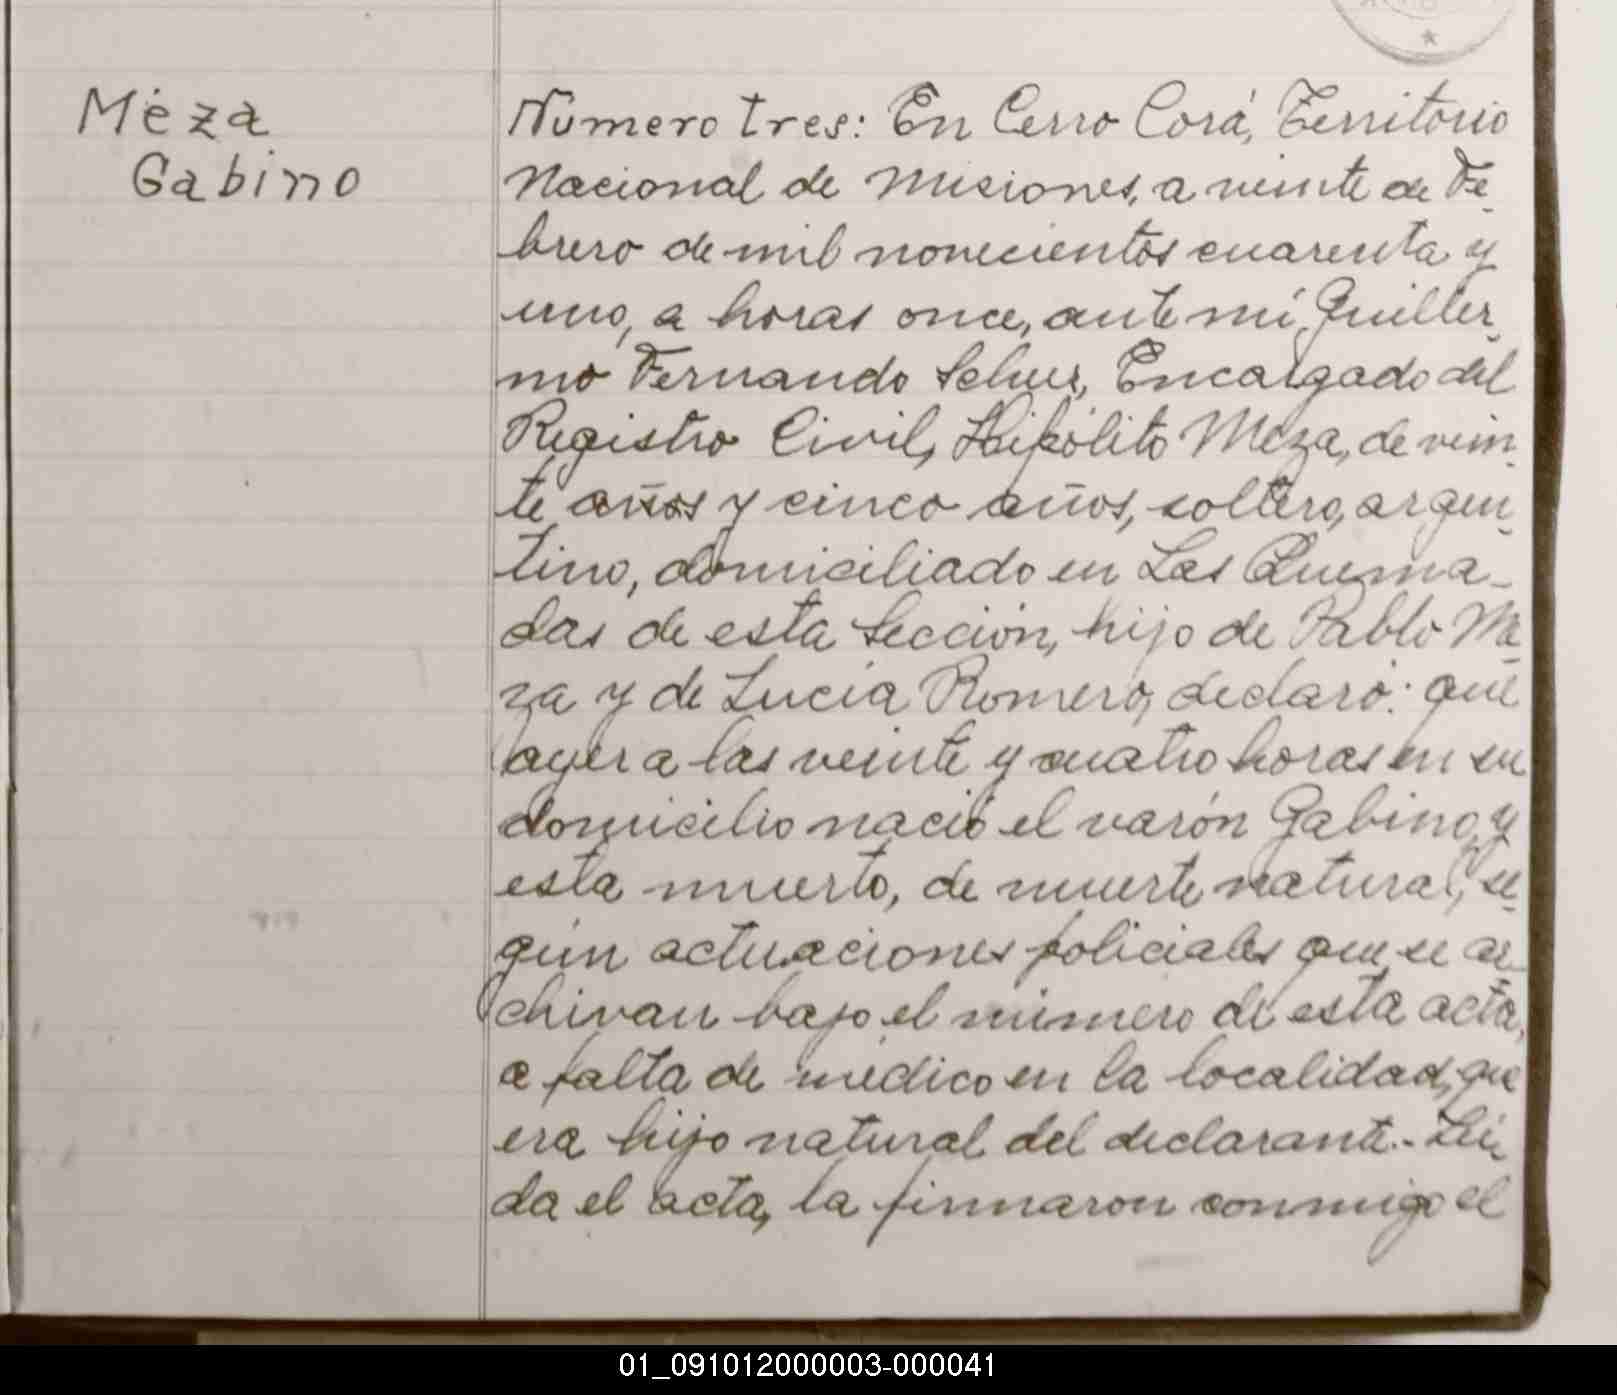 Meza
Gabino
Número tres: En Cerro Corá, Territorio
Nacional de Misiones, a veinte de Fe-
brero de mil novecientos cuarenta y
uno, a horas once, ante mí, Guiller-
mo Fernando Schur, Encargado del
Registro Civil, Hipólito Meza, de vein-
te años y cinco años, soltero, argen-
tino, domiciliado en Las Quema-
das de esta Sección, hijo de Pablo Me-
za y de Lucía Romero, declaró: que
ayer a las veinte y cuatro horas en su
domicilio nació el varón Gabino, y
esta muerto, de muerte natural, se-
gún actuaciones policiales que se ar-
chivan bajo el número de esta acta,
a falta de médico en la localidad, que
era hijo natural del declarante.- Leí-
da el acta, la firmaron conmigo el
01_091012000003-000041